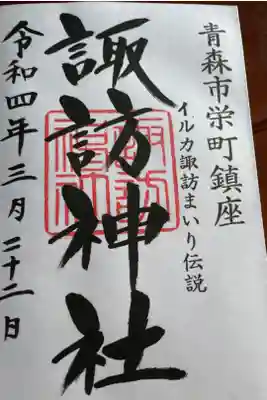 青森市栄町鎮座
イルカ諏訪まいり伝説
諏訪神社
令和四年三月二十二日